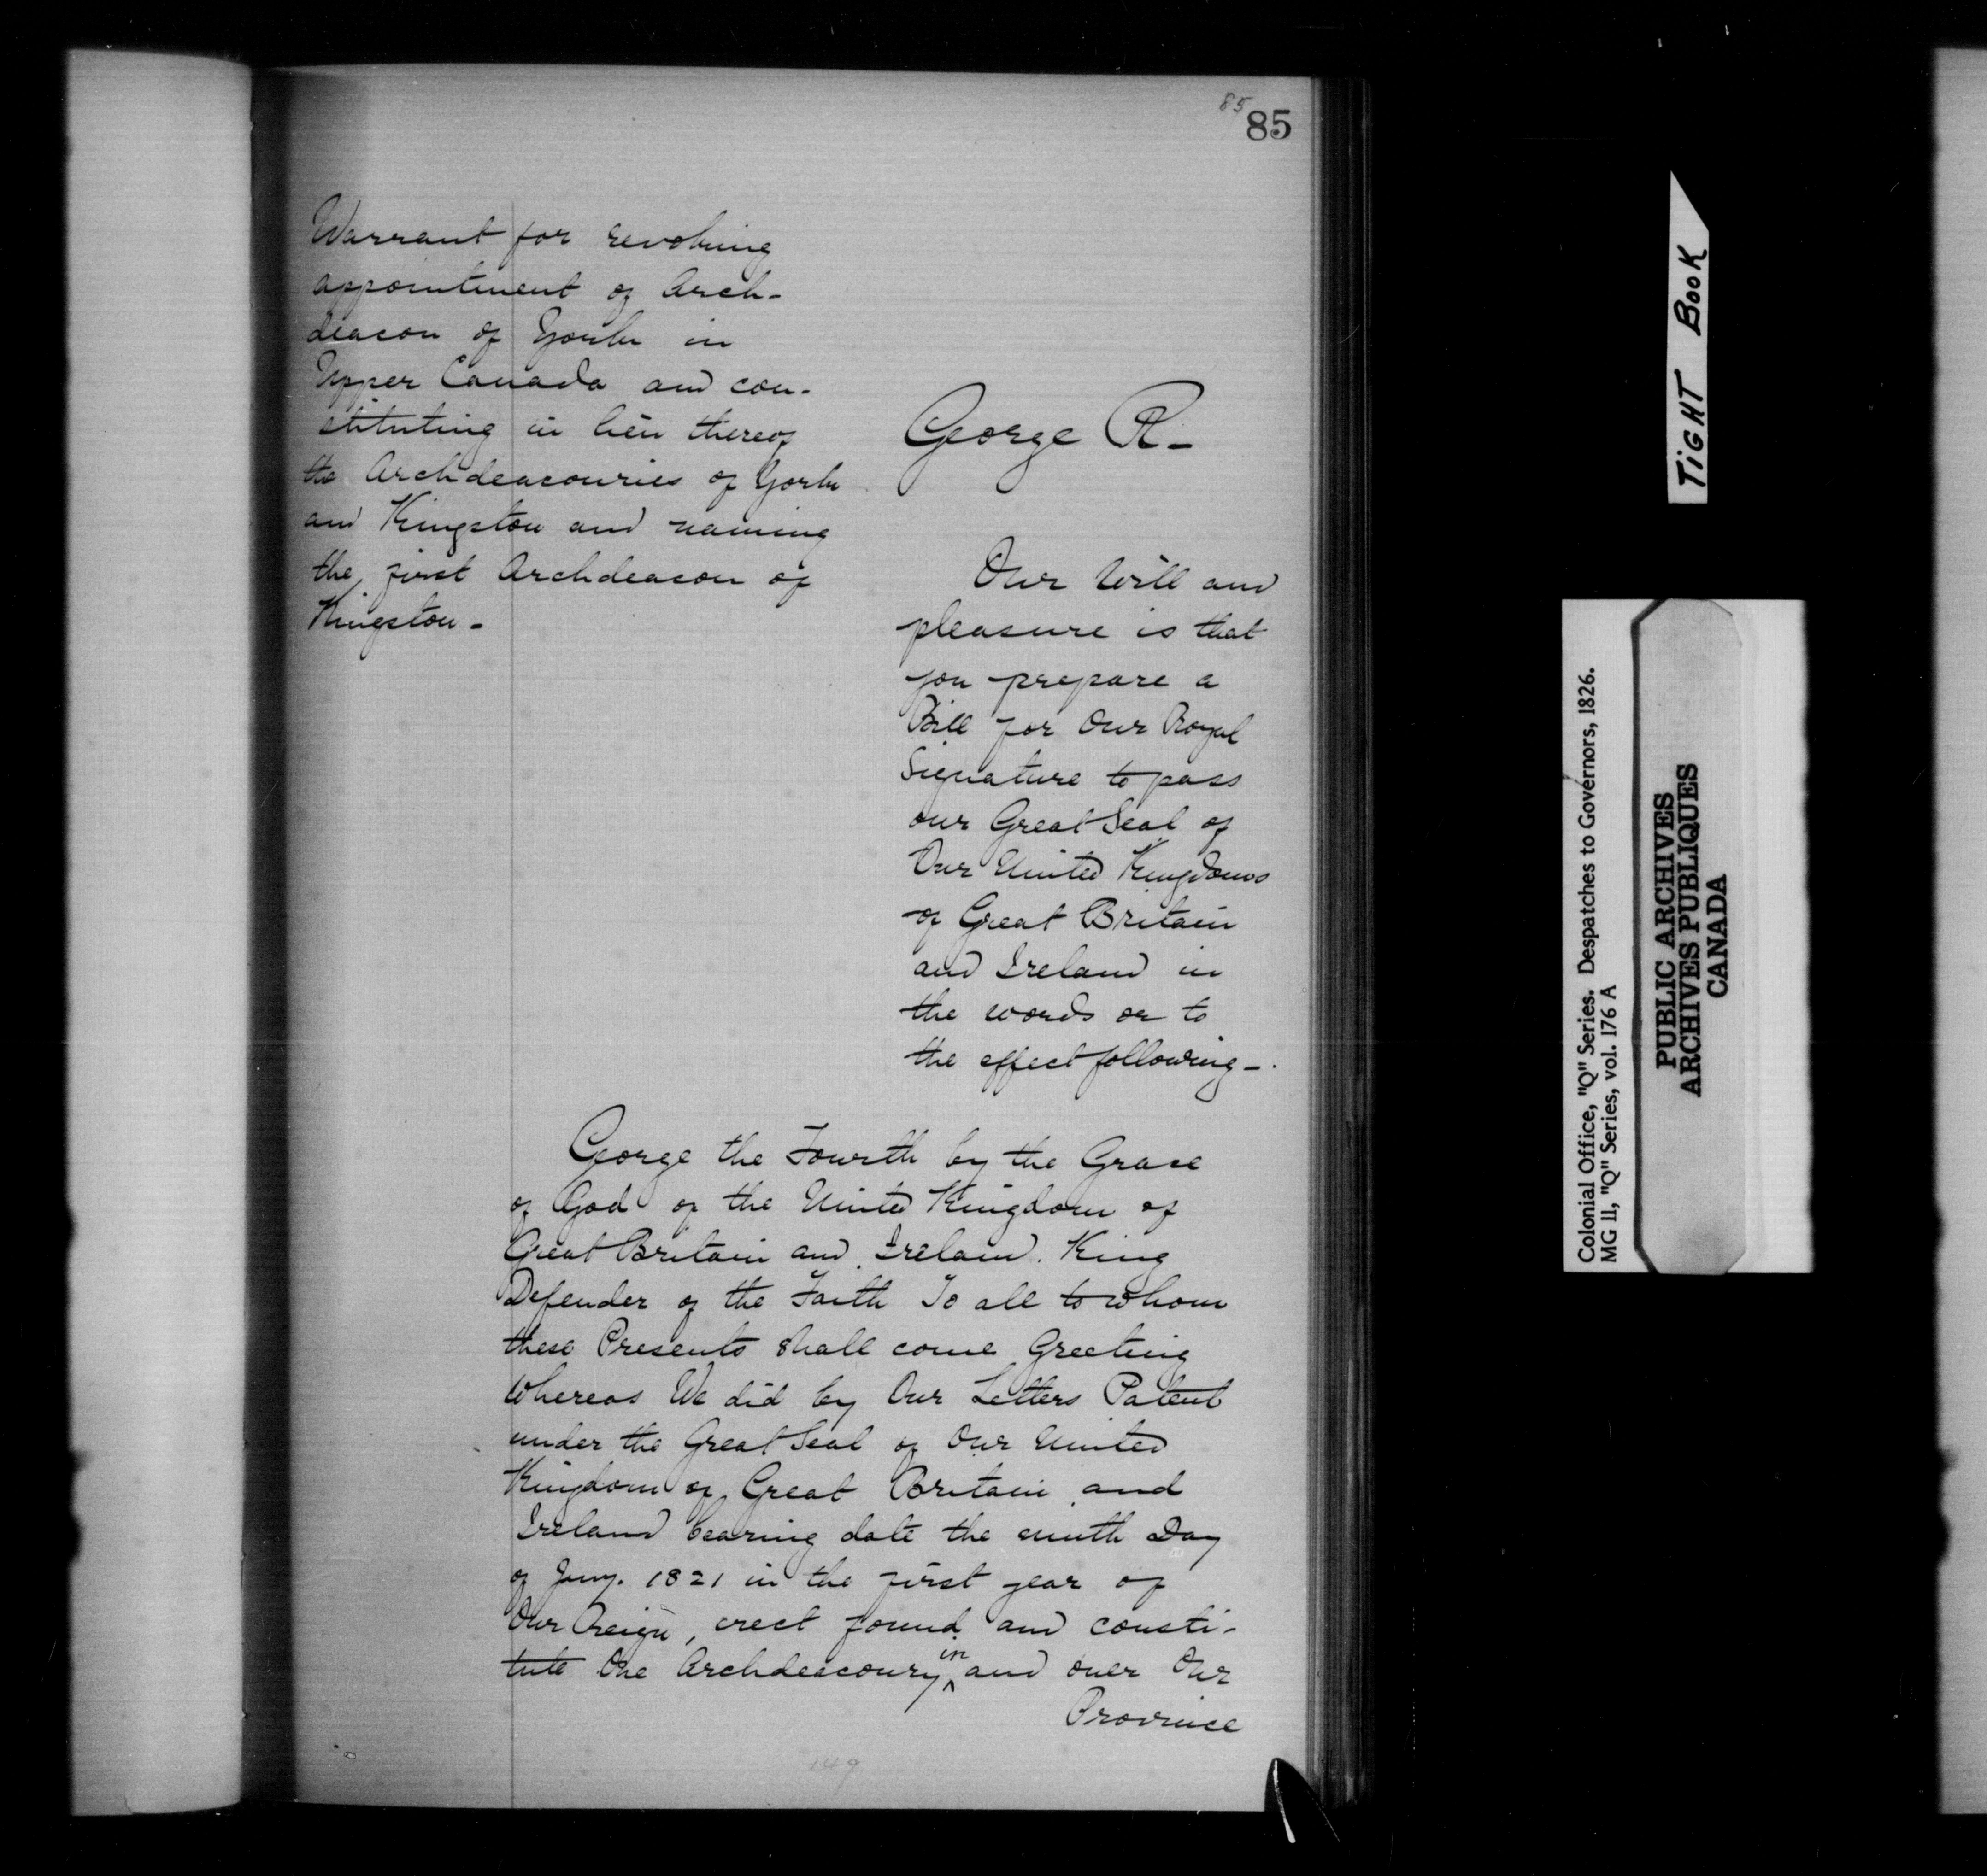 85
85
Warrant for revoking
appointment of Arch-
deacon of York in
Upper Canada and con-
stituting in lieu thereof
the Archdeaconries of York
and Kingston and naming
the first Archdeacon of
Kingston -
George R -
Our Will and
pleasure is that
you prepare a
Bill for Our Royal
Signature to pass
our Great Seal of
Our United Kingdoms
of Great Britain
and Ireland in
the words or to
the effect following -.
George the Fourth by the Grace
of God of the United Kingdom of
Great Britain and Ireland. King
Defender of the Faith To all to whom
these Presents shall come Greeting
Whereas We did by Our Letters Patent
under the Great Seal of Our United
Kingdom of Great Britain and
Ireland bearing date the ninth Day
of Jany. 1821 in the first year of
Our Reign, erect found and consti-
tute One Archdeaconry in and over Our
Province
149
TIGHT BOOK
Colonial Office, "Q" Series. Despatches to Governors, 1826.
MG 11, "Q" Series, vol. 176 A
PUBLIC ARCHIVES
ARCHIVES PUBLIQUES
CANADA